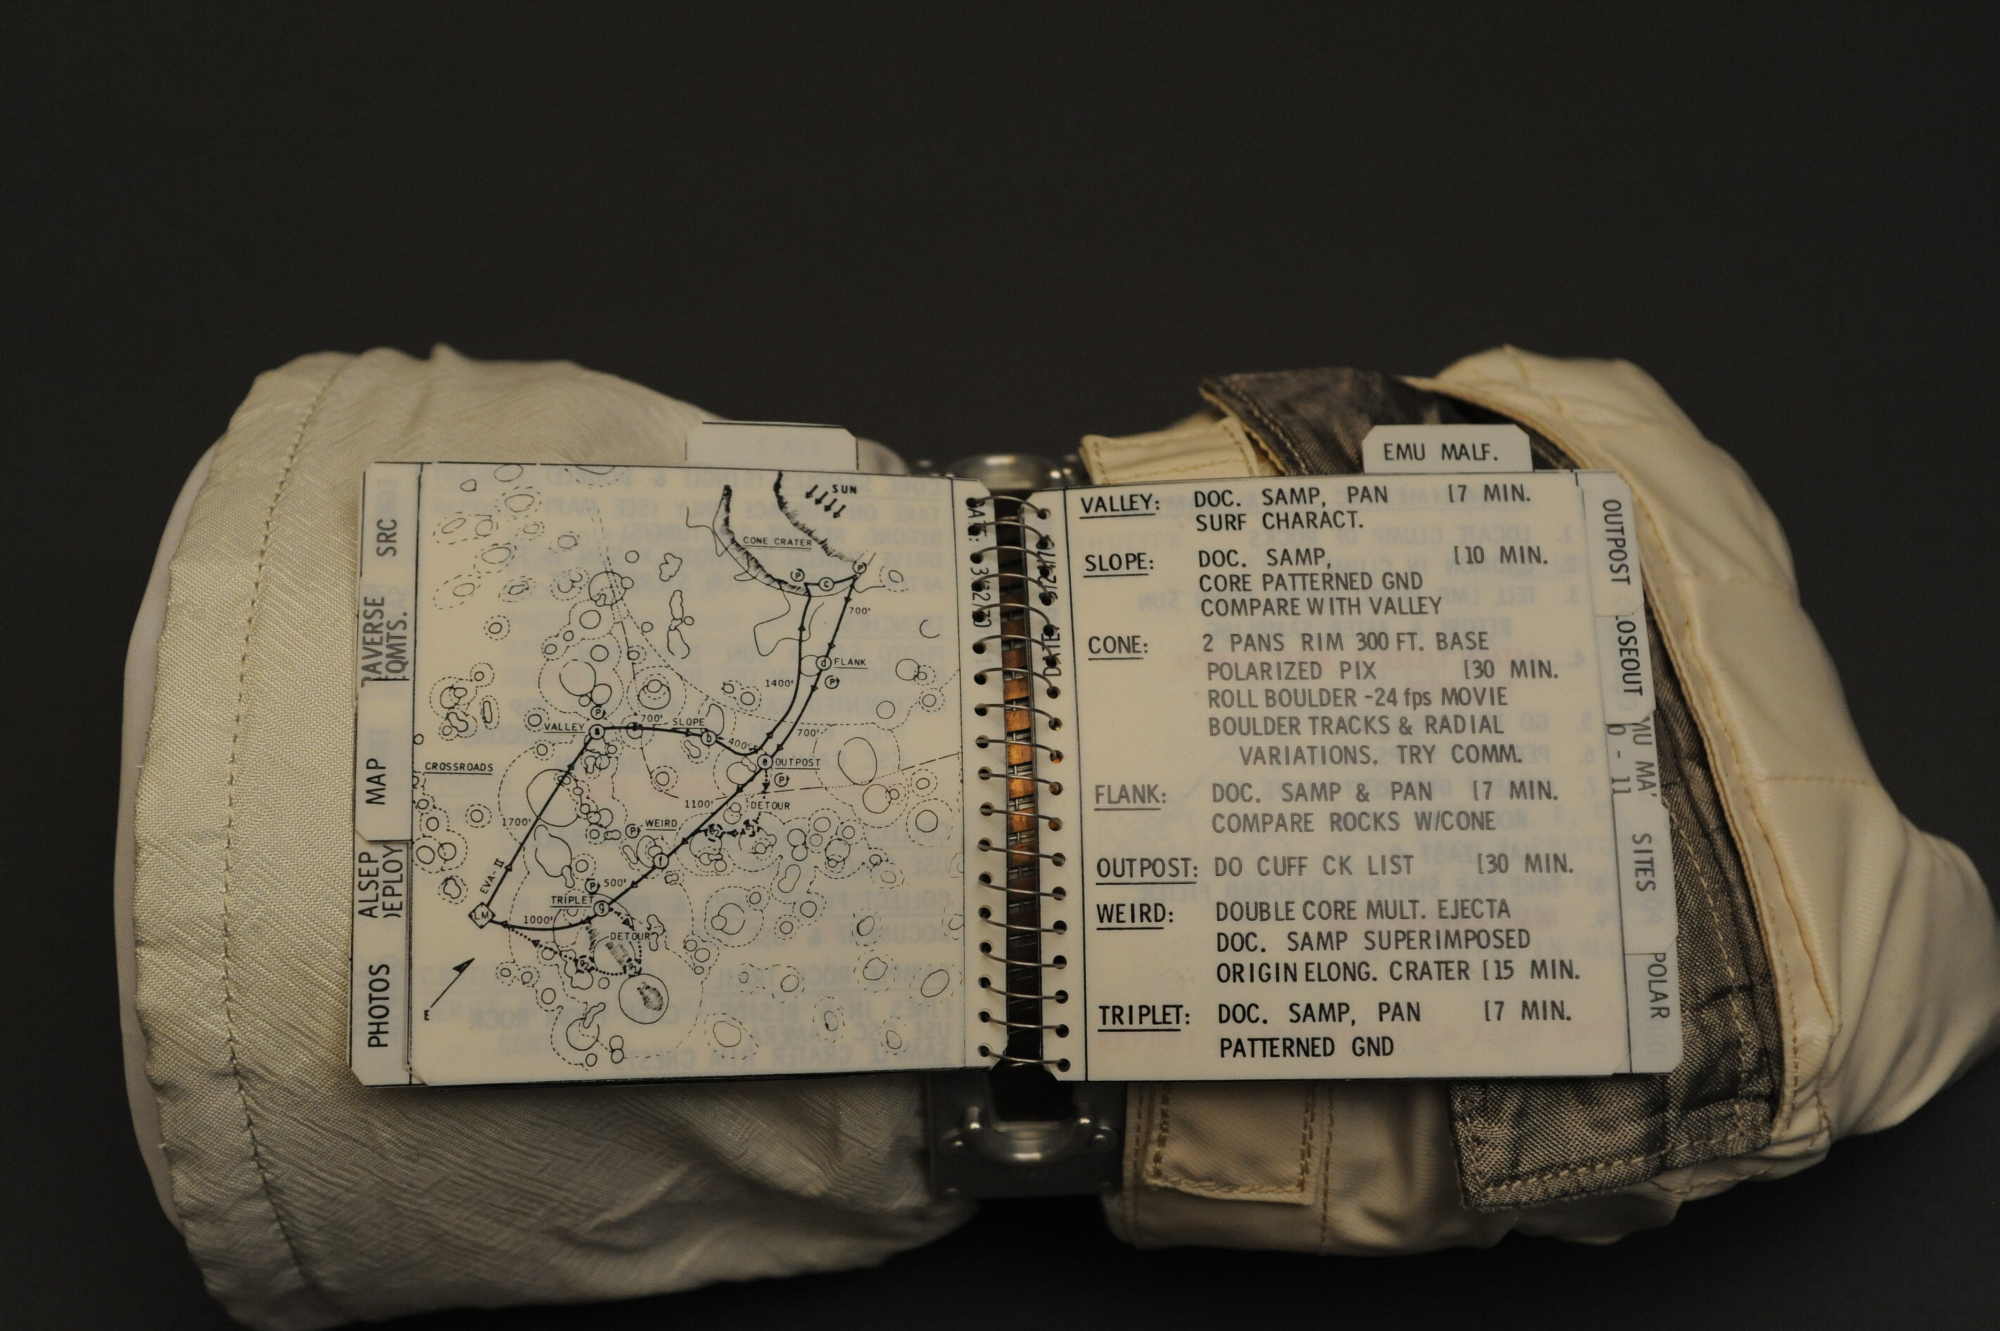 SUN
CONE CRATER
700'
FLANK
1400'
VALLEY
700'
SLOPE
400'
700'
OUTPOST
CROSSROADS
1100'
DETOUR
1700'
WEIRD
EVA-II
500'
TRIPLET
LM
1000'
DETOUR
E
SRC
MAP
ALSEP
PHOTOS
DATE:
EMU MALF.
VALLEY: DOC. SAMP, PAN [7 MIN.
SURF CHARACT.
SLOPE: DOC. SAMP, [10 MIN.
CORE PATTERNED GND
COMPARE WITH VALLEY
CONE: 2 PANS RIM 300 FT. BASE
POLARIZED PIX [30 MIN.
ROLL BOULDER -24 fps MOVIE
BOULDER TRACKS & RADIAL
VARIATIONS, TRY COMM.
FLANK: DOC. SAMP & PAN [7 MIN.
COMPARE ROCKS W/CONE
OUTPOST: DO CUFF CK LIST [30 MIN.
WEIRD: DOUBLE CORE MULT. EJECTA
DOC. SAMP SUPERIMPOSED
ORIGIN ELONG. CRATER [15 MIN.
TRIPLET: DOC. SAMP, PAN [7 MIN.
PATTERNED GND
OUTPOST
SITES
POLAR